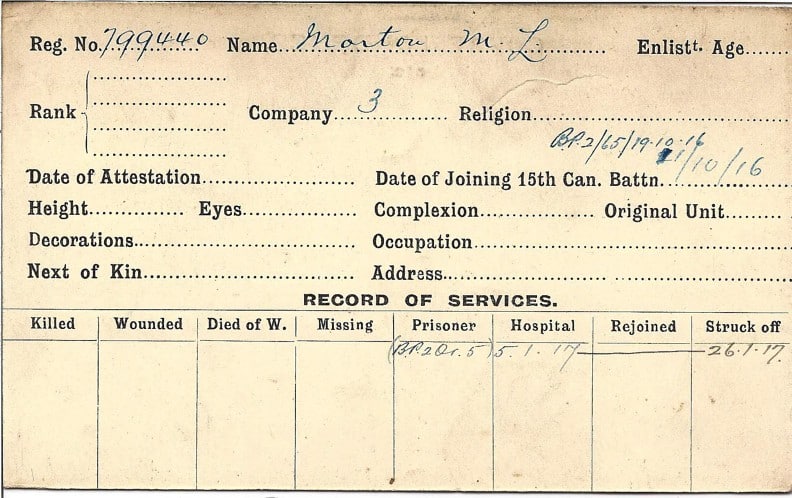 Reg. No. 799440 Name Morton M. L Enlistt. Age
Rank Company 3 Religion
B.P.2/65/19-10-16
Date of Attestation Date of Joining 15th Can. Battn. /10/16
Height Eyes Complexion Original Unit
Decorations Occupation
Next of Kin Address
RECORD OF SERVICES.
Killed Wounded Died of W. Missing Prisoner Hospital Rejoined Struck off
(B.P.2Or.5) 5.1.17 26.1.17.